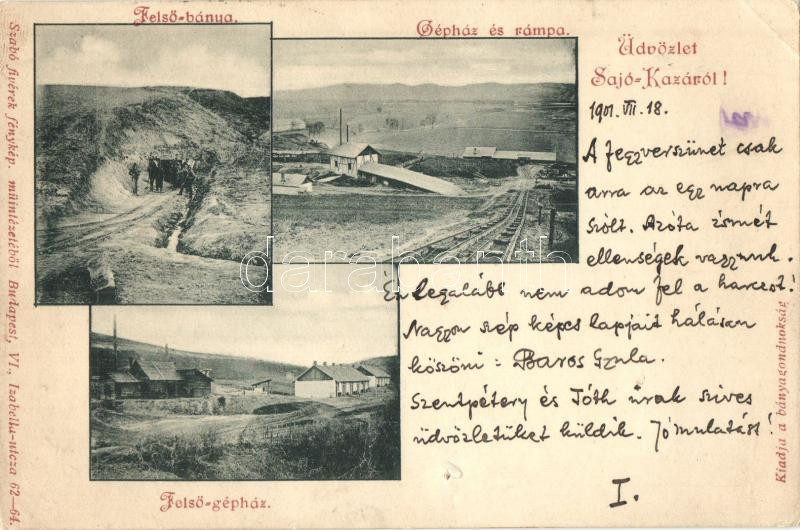 Felső-bánya.
Gépház és rámpa.
Üdvözlet
Sajó-Kazáról!
1901. VII. 18.
A fegyverszünet csak
arra az egy napra
szólt. Azóta ismét
ellenségek vagyunk.
Én legalább nem adom fel a harczot!
Nagyon szép képes lapjait hálásan
köszöni: Baros Gyula.
Szentpétery és Tóth urak szives
üdvözletüket küldik. Jó mulatást!
I.
Felső-gépház.
Szabó fivérek fénykép. műintézetéből Budapest, VI., Izabella-utcza 62-64.
Kiadja a bányagondnokság
darabanth.com